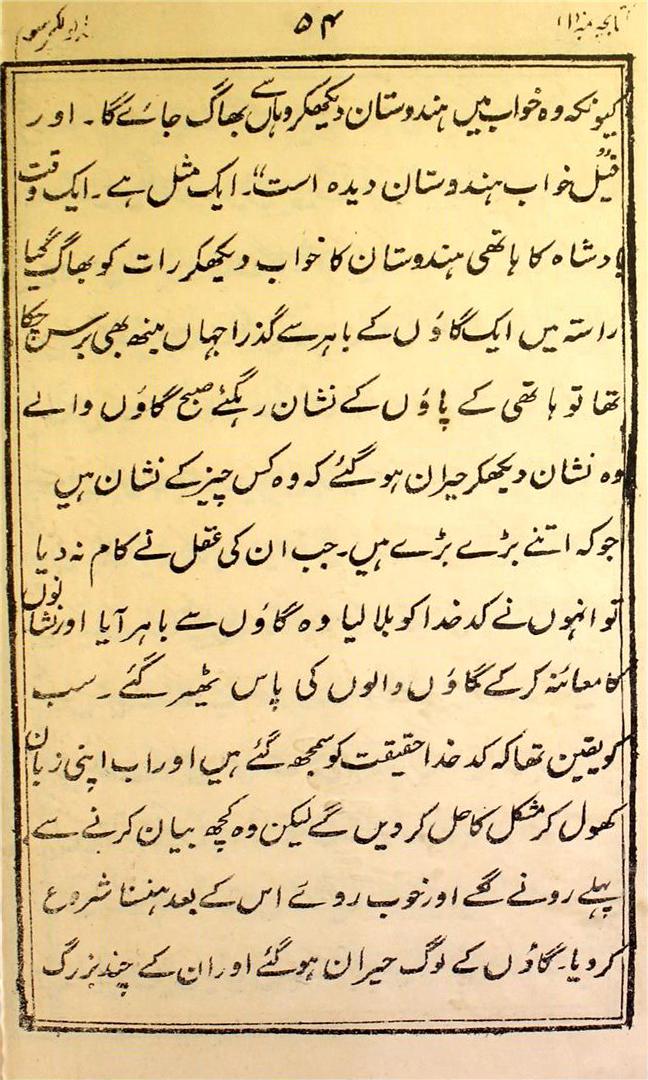 ۵۴
کیونکہ وہ خواب میں ہندوستان دیکھکر وہاں سے بھاگ جائے گا۔ اور
فیل خواب ہندوستان دیدہ است“۔ ایک مثل ہے۔ ایک وقت
بادشاہ کا ہاتھی ہندوستان کا خواب دیکھکر رات کو بھاگ گیا
راستہ میں ایک گاؤں کے باہر سے گذرا جہاں مینھ بھی برس چکا
تھا تو ہاتھی کے پاؤں کے نشان رہگئے صبح گاؤں والے
وہ نشان دیکھکر حیران ہو گئے کہ وہ کس چیز کے نشان ہیں
جو کہ اتنے بڑے بڑے ہیں۔ جب ان کی عقل نے کام نہ دیا
تو انہوں نے کدخدا کو بلا لیا وہ گاؤں سے باہر آیا اور نشانوں
کا معائنہ کر کے گاؤں والوں کی پاس ٹھیر گئے۔ سب
کو یقین تھا کہ کدخدا حقیقت کو سمجھ گئے ہیں اور اب اپنی زبان
کھول کر مشکل کا حل کر دیں گے لیکن وہ کچھ بیان کرنے سے
پہلے رونے لگے اور خوب روئے اس کے بعد ہنسنا شروع
کر دیا۔ گاؤں کے لوگ حیران ہو گئے اور ان کے چند بزرگ